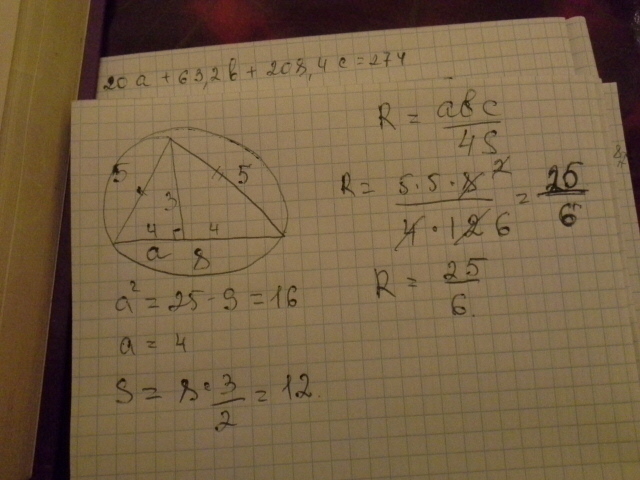 20a + 63,2b + 208,4c = 274
5 5
3
4 4
a 8
a² = 25 - 9 = 16
a = 4
S = 8 · 3/2 = 12.
R = abc/4S
R = 5·5·8 2/4·12 6 = 25/6
R = 25/6.